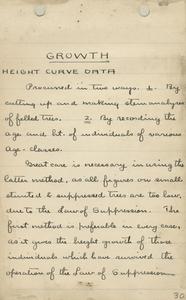 GROWTH
HEIGHT CURVE DATA
Procured in two ways. 1. By
cutting up and making stem analyses
of felled trees. 2. By recording the
age and ht. of individuals of various
Age-classes.
Great care is necessary in using the
latter method, as all figures on small
stunted & suppressed trees are too low,
due to the Law of Suppression. The
first method is preferable in every case,
as it gives the height growth of those
individuals which have survived the
operation of the Law of Suppression